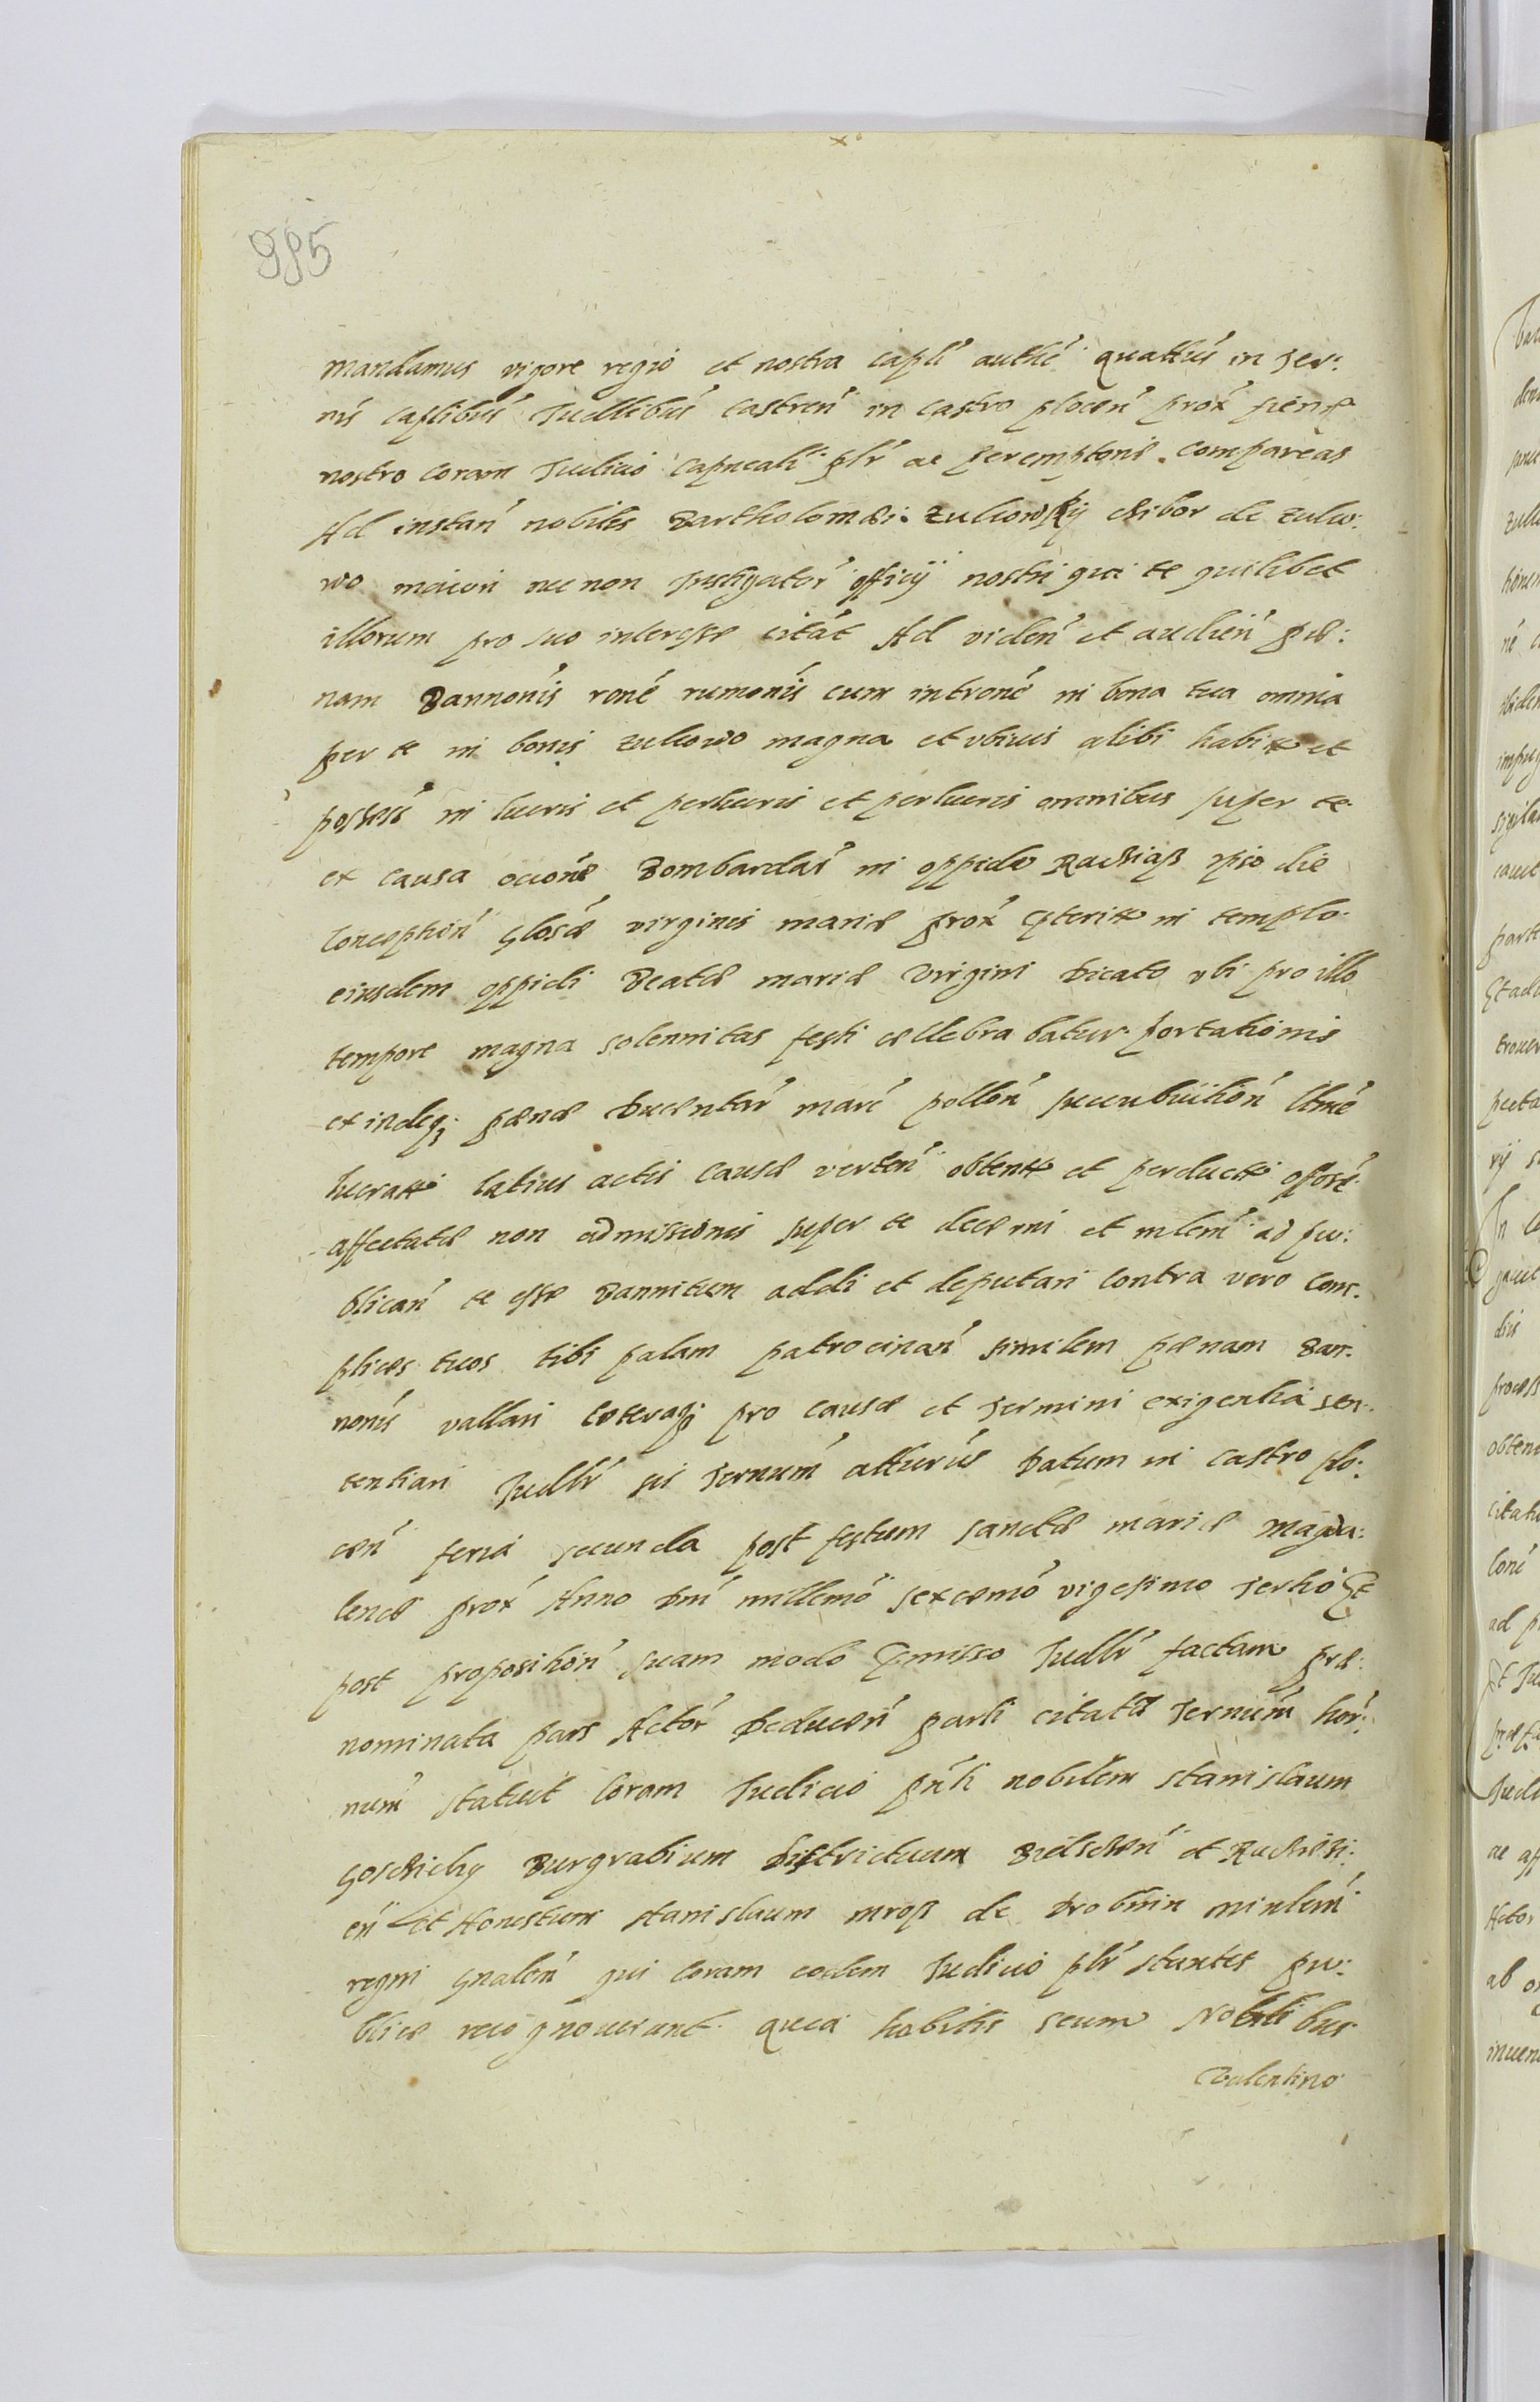 985
mandamus vigore regio et nostra capli authe quatus in ter:
nis caplibus Judllibus castren in castro plocen prox
nostro coram Judicio capneali plr ac peremptorie compareas
Ad instan nobilis Bartholomæi Zulkowskij chibor de Zulko:
wo maiori nec non Instigator officij nostri qui te quilibet
illorum pro suo interesse citat Ad viden et audien pæ:
nam Bannonis rone rumonis cum introne in bona tua omnia
per te in bonis zulkowo magna et ubiuis alibi habit et
possess in lucris et perlucris et perlucris omnibus super te
ex causa Bombardas in oppido Raciaß ipso die
Conception glosæ virginis mariæ prox præterit in templo
eiusdem oppidi Beatæ mariæ Virgini Dicato vbi pro illo
tempore magna solennitas festi cællebrabatur portationis
et indeq; pænæ Ducentar marc pollon
lucrati latius actis causæ verten obtent et perducti
affectatæ non admissionis super te decærni et mlem ad pu:
blican te esse Bannitum addi et deputari Contra vero Com:
plices tuos tibi palam patrocinan similem pænam Ban:
nonis vallari cæteraq; pro causæ et termini exigentia sen:
tentiari Judllr sis ternum atturus Datum in castro plo:
cen feria secunda post festum sanctæ mariæ magda:
lenæ prox Anno Dni millemo sexcemo vigesimo tertio Et
post proposition suam modo præmisso Judllr factam præ:
nominata pars Actor Deducen parti citatæ ternum hor:
num statuit Coram Judicio pnti nobilem stanislaum
Goschichy Burgrabium Districtuum Bielscen et Raciąsi:
en et Honestum stanislaum mroß de Drobnin minlem
regni gnalem qui Coram eodem Judicio plr stantes pu:
blice recognouerunt quia habitis secum Nobilibus
Valentino